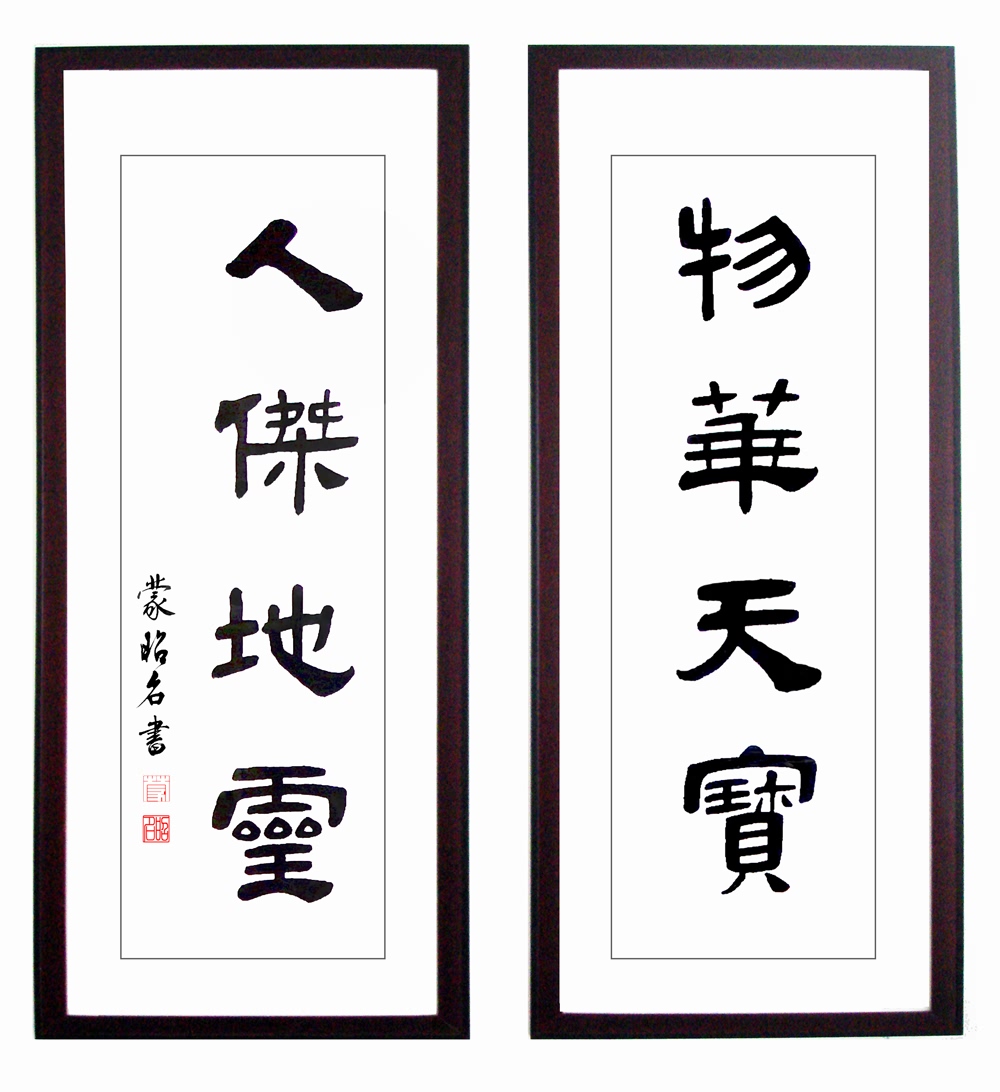 物華天寶
人傑地靈
蒙昭名書
蒙
昭名